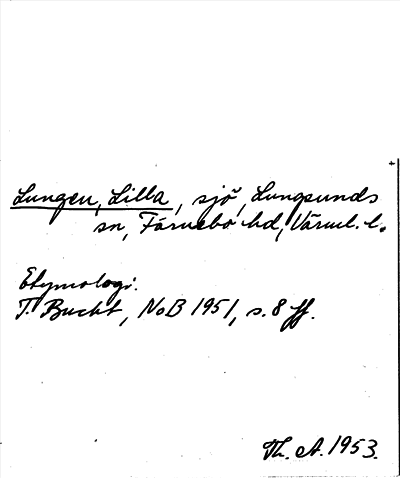 Lungen, Lilla, sjö, Lungsunds
sn, Färnebo hd, Värml. l.
Etymologi.
T. Bucht, NoB 1951, s. 8 ff.
Th. A. 1953.